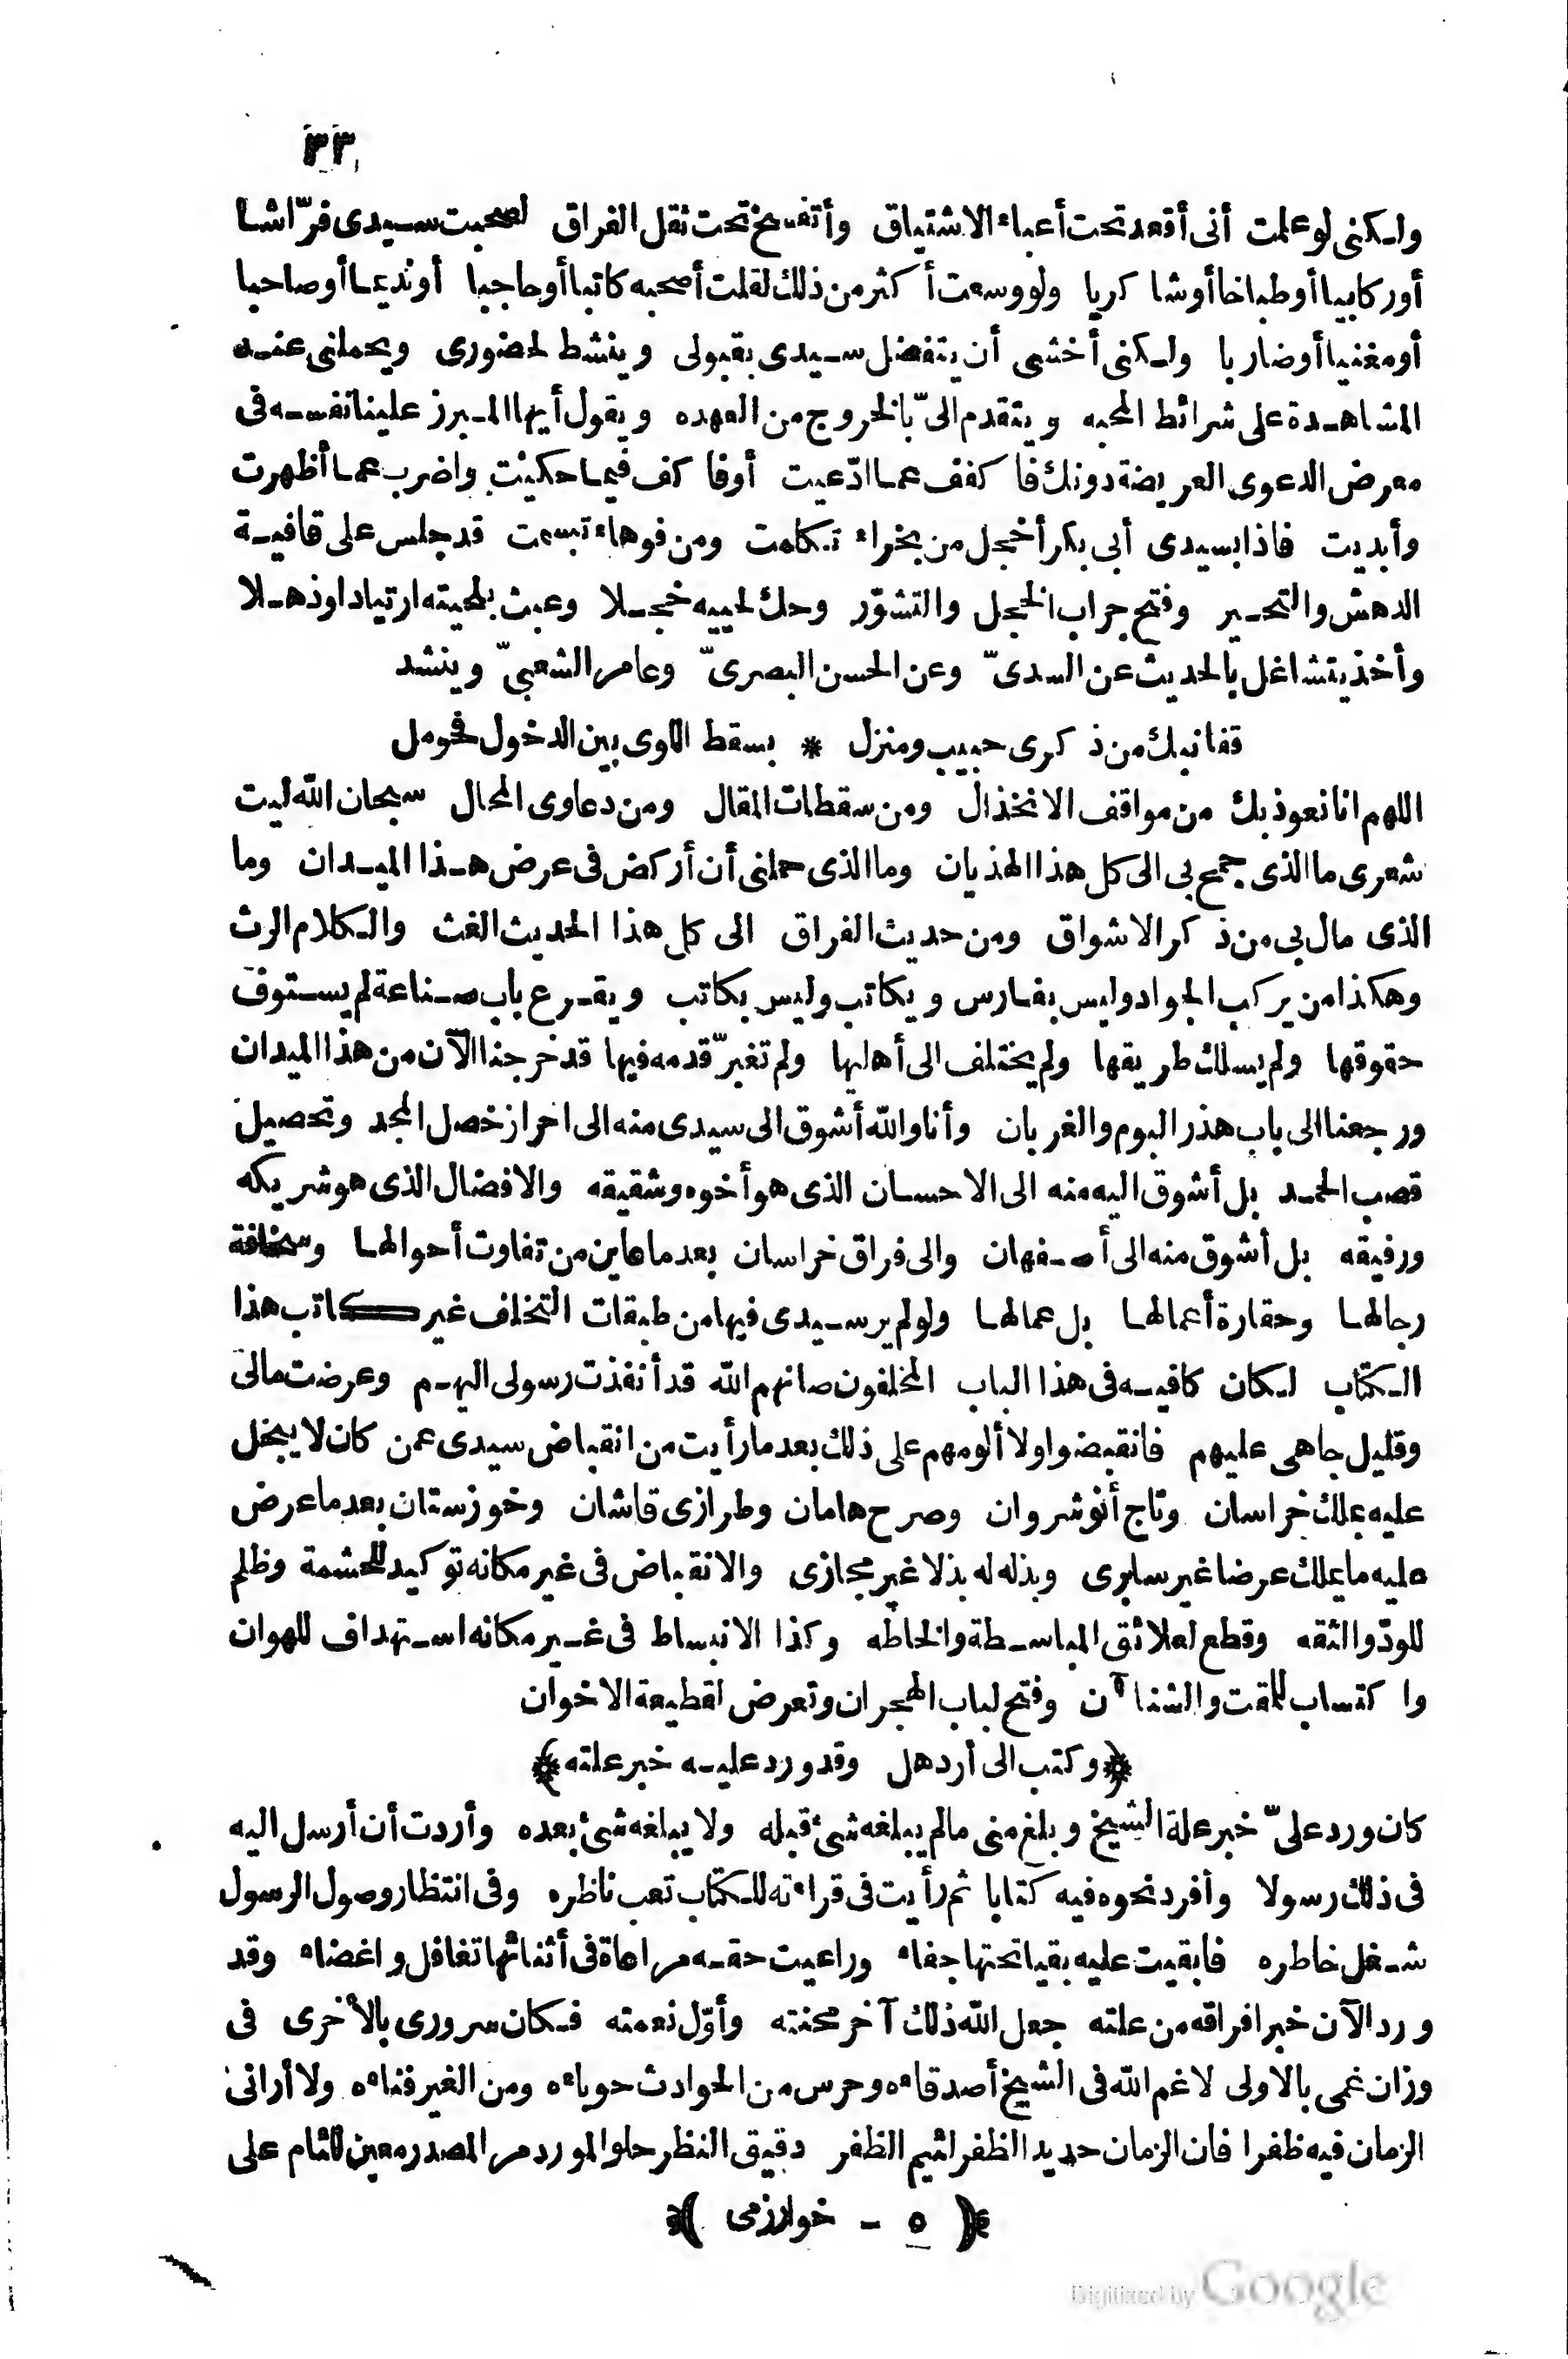 ٣٣
ولكنى لو علمت أنى أقعد تحت أعباء الاشتياق وأتفسخ تحت ثقل الفراق لصحبت سيدى فرّاشا
أو ركابيا أو طباخا أو شا كريا ولو وسعت أكثر من ذلك لقلت أصحبه كاتبا أو حاجبا أو نديما أو صاحبا
أو مغنيا أو ضاربا ولكنى أخشى أن يتفضل سيدى بقبولى وينشط لحضورى ويحملنى عند
المشاهدة على شرائط المحبه ويتقدم الىّ بالخروج من العهده ويقول أيها المبرز علينا نفسه فى
معرض الدعوى العريضة دونك فا كفف عما ادّعيت أوفا كف فيما حكيت واضرب عما أظهرت
وأبديت فاذا بسيدى أبى بكر أخجل من بخراء تكلمت ومن فوهاء تبسمت قد جلس على قافية
الدهش والتحير وفتح جراب الخجل والتشوّر وحك لحييه خجلا وعبث بلحيته ارتيادا وذهلا
وأخذ يتشاغل بالحديث عن السدىّ وعن الحسن البصرىّ وعامر الشعبىّ وينشد
قفا نبك من ذكرى حبيب ومنزل * بسقط اللوى بين الدخول فحومل
اللهم انا نعوذ بك من مواقف الانخذال ومن سقطات المقال ومن دعاوى المحال سبحان الله ليت
شعرى ما الذى جمح بى الى كل هذا الهذيان وما الذى حملنى أن أركض فى عرض هذا الميدان وما
الذى مال بى من ذكر الاشواق ومن حديث الفراق الى كل هذا الحديث الغث والكلام الرث
وهكذا من يركب الجواد وليس بفارس ويكاتب وليس بكاتب ويقرع باب صناعة لم يستوف
حقوقها ولم يسلك طريقها ولم يختلف الى أهليها ولم تغبرّ قدمه فيها قد خرجنا الآن من هذا الميدان
ورجعنا الى باب هذر البوم والغربان وأنا والله أشوق الى سيدى منه الى احراز خصل المجد وتحصيل
قصب الحمد بل أشوق اليه منه الى الاحسان الذى هو أخوه وشقيقه والافضال الذى هو شريكه
ورفيقه بل أشوق منه الى أصفهان والى فراق خراسان بعد ما عاين من تفاوت أحوالها وسخافة
رجالها وحقارة أعمالها بل عمالها ولو لم ير سيدى فيها من طبقات التخلف غير كاتب هذا
الكتاب لكان كافيه فى هذا الباب المخلفون صانهم الله قد أنفذت رسولى اليهم وعرضت مالى
وقليل جاهى عليهم فانقبضوا ولا ألومهم على ذلك بعد ما رأيت من انقباض سيدى عمن كان لا يبخل
عليه بملك خراسان وتاج أنوشروان وصرح هامان وطرازى قاشان وخوزستان بعد ما عرض
عليه ما يملك عرضا غير سابرى وبذله له بذلا غير مجازى والانقباض فى غير مكانه توكيد للحشمة وظلم
للودّ والثقه وقطع لعلائق المباسطة والخلطه وكذا الانبساط فى غير مكانه استهداف للهوان
واكتساب للمقت والشنآن وفتح لباب الهجران وتعرض لقطيعة الاخوان
﴿وكتب الى أردهل وقد ورد عليه خبر علته﴾
كان ورد علىّ خبر علة الشيخ وبلغ منى مالم يبلغه شئ قبله ولا يبلغه شئ بعده وأردت أن أرسل اليه
فى ذلك رسولا وأفرد نحوه فيه كتابا ثم رأيت فى قراءته للكتاب تعب ناظره وفى انتظار وصول الرسول
شغل خاطره فابقيت عليه بقيا تحتها جفاء وراعيت حقه مراعاة فى أثنائها تغافل واغضاء وقد
ورد الآن خبر افراقه من علته جعل الله ذلك آخر محنته وأوّل نعمته فكان سرورى بالأخرى فى
وزان غمى بالاولى لا غم الله فى الشيخ أصدقاءه وحرس من الحوادث حوباءه ومن الغير فناءه ولا أرانى
الزمان فيه ظفرا فان الزمان حديد الظفر لئيم الظفر دقيق النظر حلو المورد مر المصدر معين للئام على
﴿ ٥ - خوارزمى ﴾
Digitized by Google